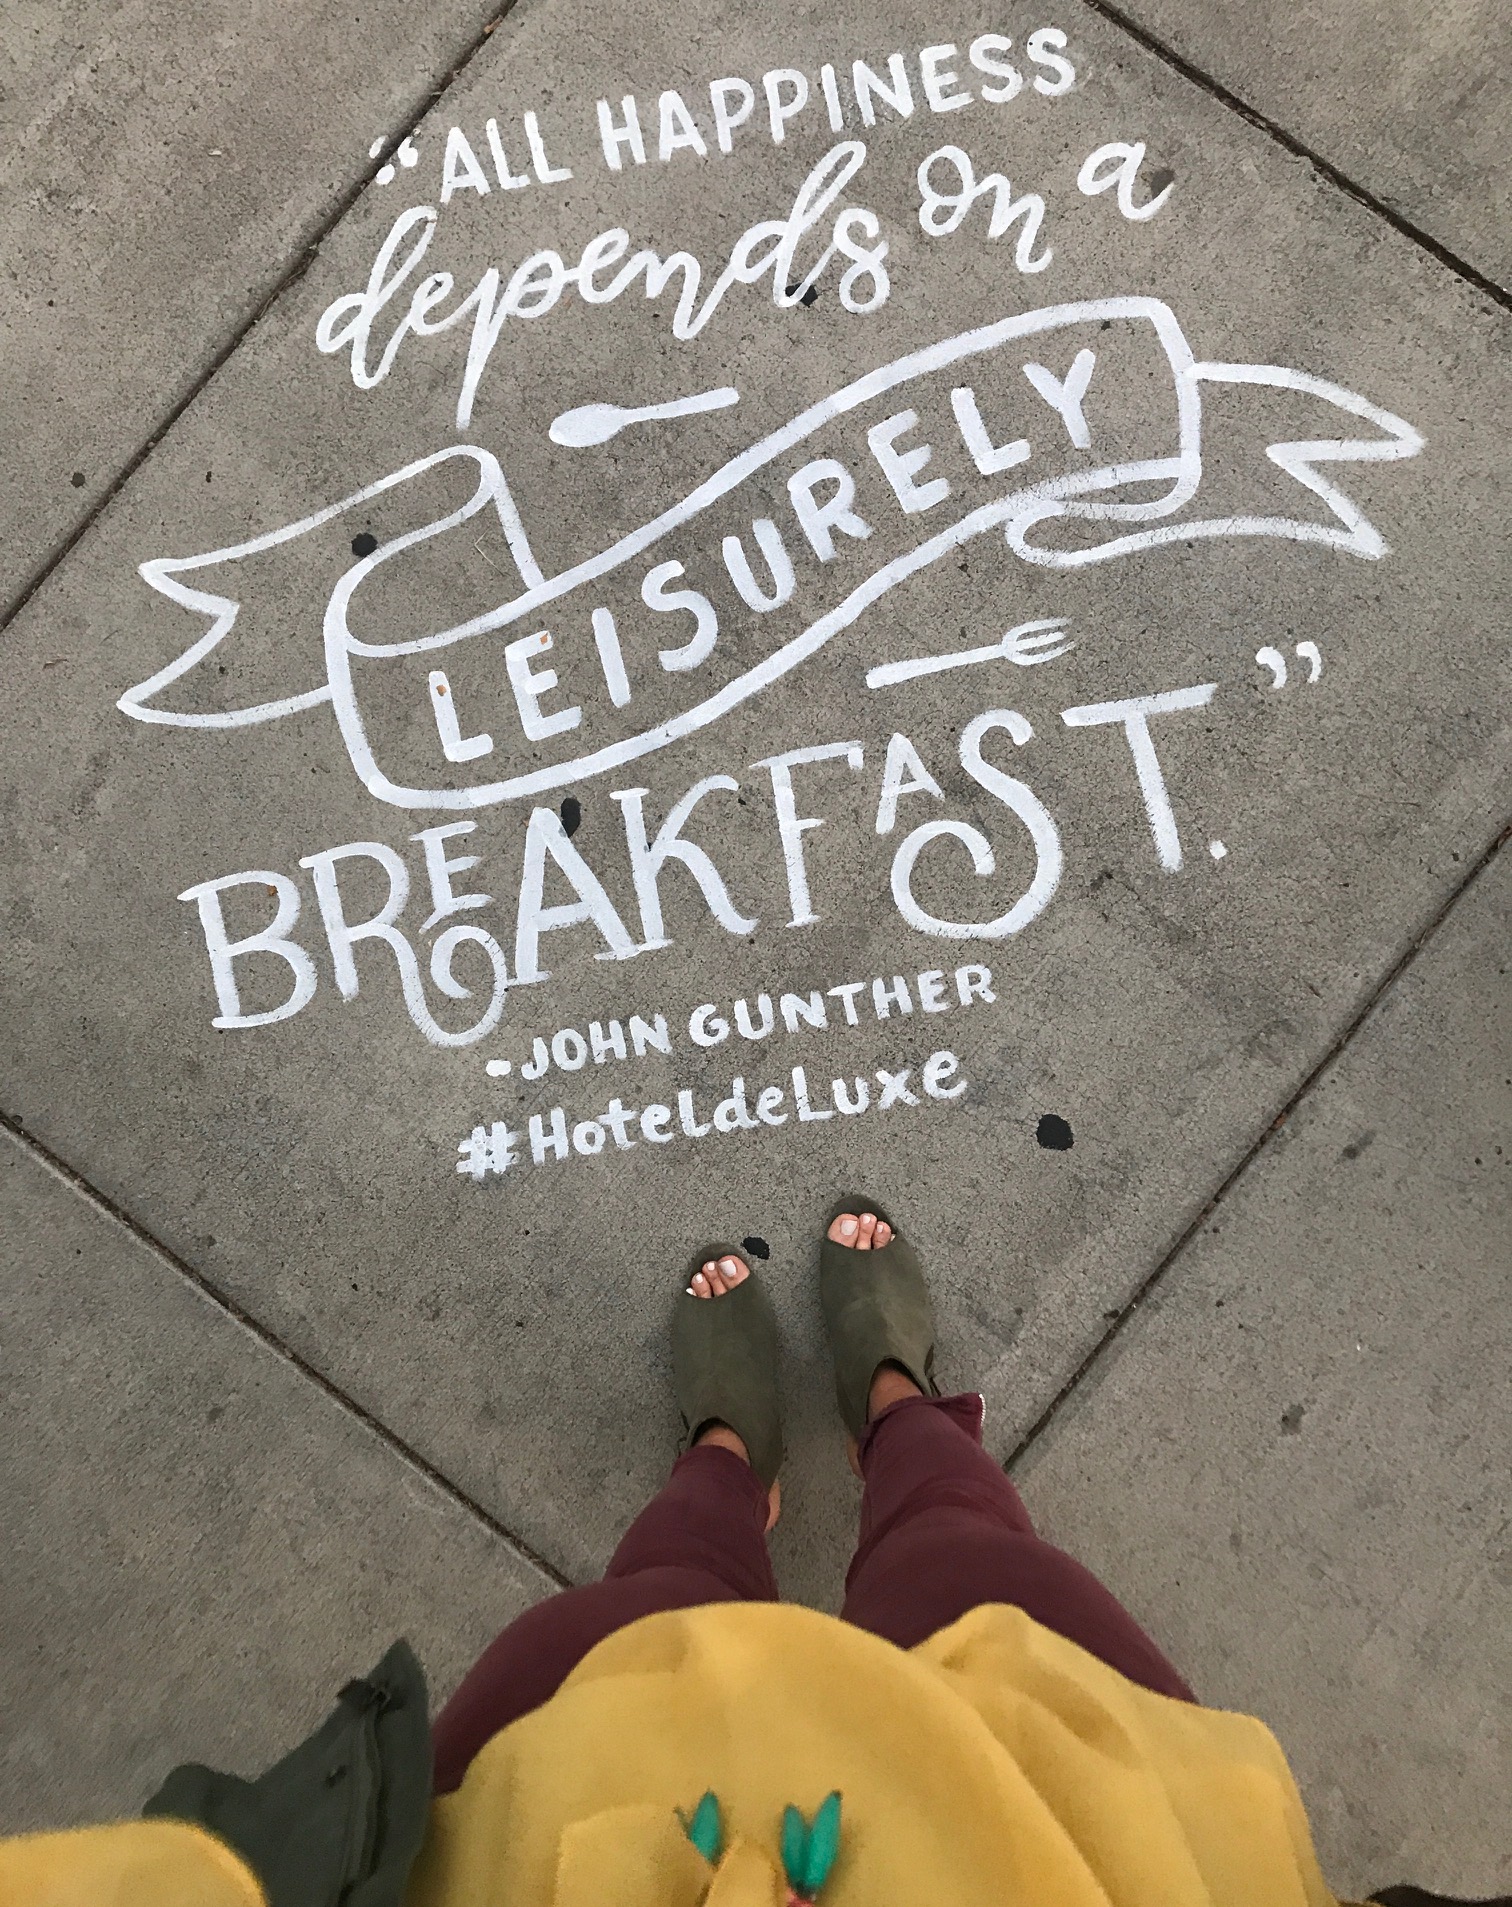 “ALL HAPPINESS
depends on a
LEISURELY
BREAKFAST.”
-JOHN GUNTHER
#HoteldeLuxe